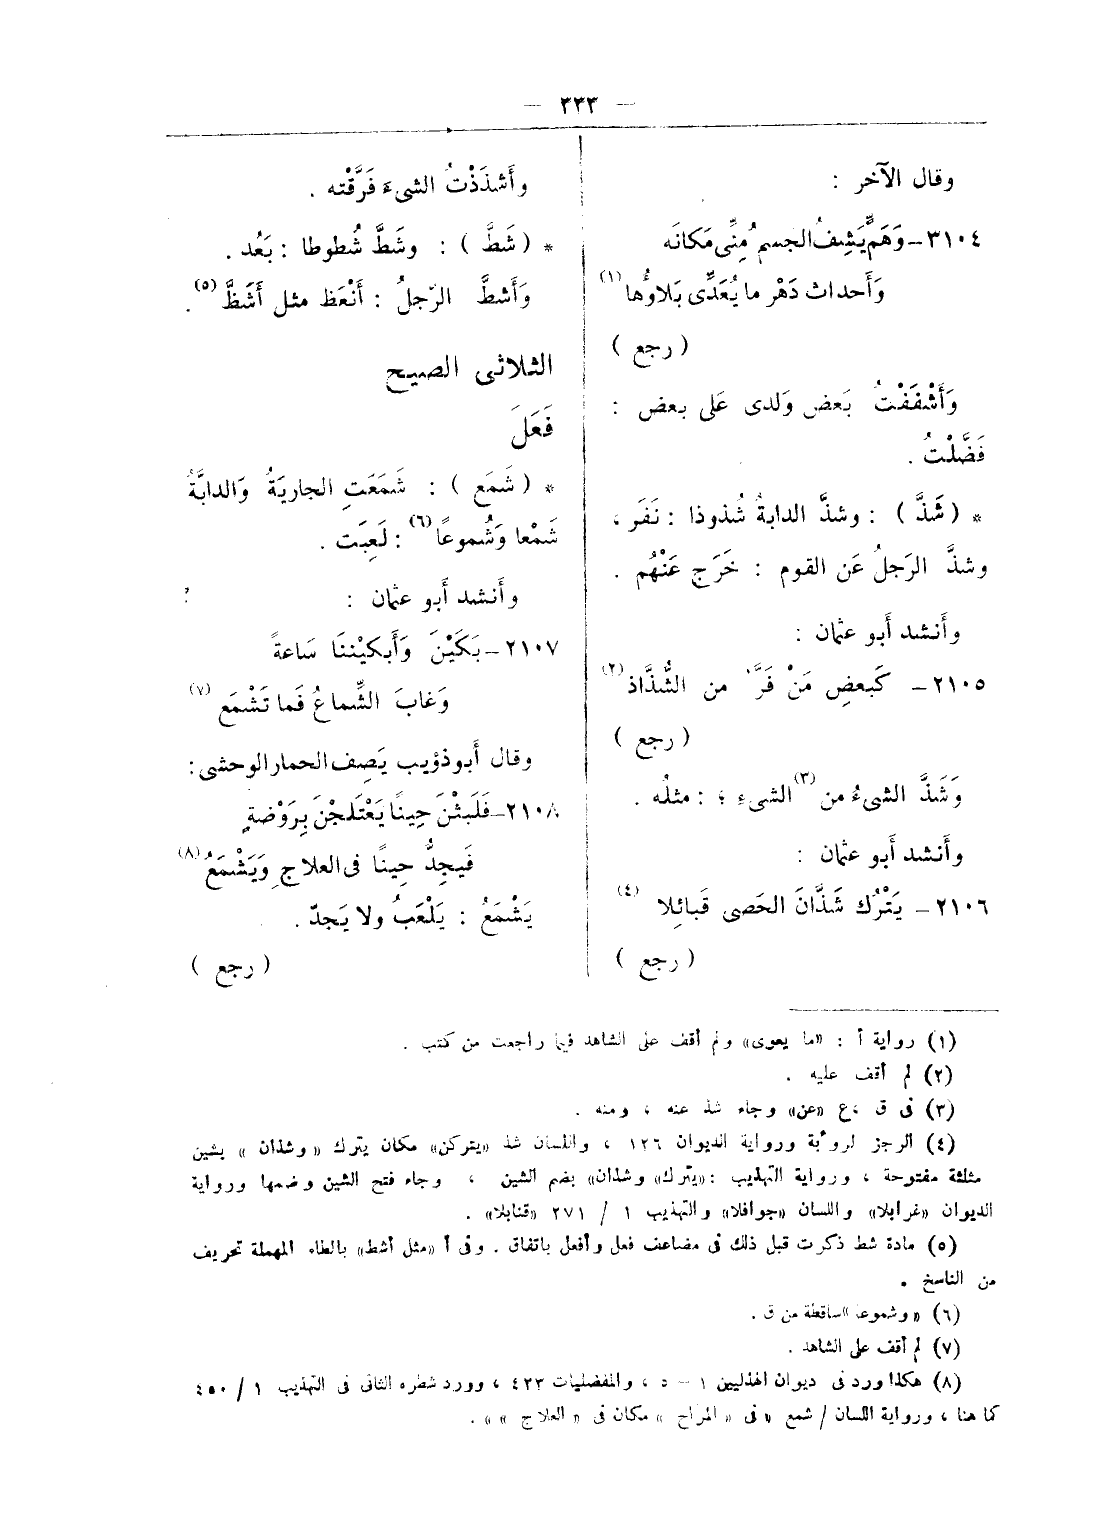 — ٣٣٣ —
وقال الآخر :
٣١٠٤ــ وَهَمٌّ يَشِفُّ الجسمَ مِنِّى مَكانَه
وَأَحداث دَهْر ما يُعَدَّى بَلاوُها (١)
( رجع )
وَأَشْفَفْتُ بَعض وَلدى عَلى بعض :
فَضَّلْتُ .
* ( شَذَّ ) : وشذَّ الدابةُ شُذوذا : نَفَر ،
وشذَّ الرَجلُ عَن القوم : خَرَج عَنْهُم .
وأَنشد أَبو عثمان :
٢١٠٥ــ كَبعضِ مَنْ فَرَّ من الشُّذَّاذ (٢)
( رجع )
وَشَذَّ الشىءُ من (٣) الشىءِ ؛ : مثلُه .
وأَنشد أَبو عثمان :
٢١٠٦ــ يَتْرُك شَذَّانَ الحَصى قَبائِلا (٤)
( رجع )
وأَشذَذْتُ الشىءَ فَرَّقْته .
* ( شَطَّ ) : وشَطَّ شُطوطا : بَعُد .
وَأَشطَّ الرّجلُ : أَنْعَظ مثل أَشَظَّ (٥) .
الثلاثى الصحيح
فَعَلَ
* ( شَمَع ) : شَمَعَتِ الجاريَةُ وَالدابَّةُ
شَمْعا وَشُموعًا (٦) : لَعِبَت .
وأَنشد أَبو عثمان :
٢١٠٧ــ بَكَيْنَ وَأَبكيْننَا سَاعةً
وَغابَ الشِّماعُ فَما تَشْمَع (٧)
وقال أَبو ذؤيب يَصِف الحمار الوحشى :
٢١٠٨ــ فَلَبثْنَ حِينًا يَعْتَلجْنَ بِرَوْضةٍ
فَيجِدُّ حِينًا فى العلاجِ وَيَشْمَعُ (٨)
يَشْمَعُ : يَلْعَبُ ولا يَجدّ .
( رجع )
(١) رواية أ : «ما يعوى» ولم أقف على الشاهد فيما راجعت من كتب .
(٢) لم أقف عليه .
(٣) فى ق ،ع «عن» وجاء شذ عنه ، ومنه .
(٤) الرجز لرؤبة ورواية الديوان ١٢٦ ، واللسان شذ «يتركن» مكان يترك «وشذان » بشين
مثلثة مفتوحة ، ورواية التهذيب :«يترك» وشذان» بضم الشين ، وجاء فتح الشين وضمها ورواية
الديوان «غرابلا» واللسان «جوافلا» والتهذيب ١ / ٢٧١ «قنابلا» .
(٥) مادة شط ذكرت قبل ذلك فى مضاعف فعل وأفعل باتفاق . وفى أ «مثل أشط» بالطاء المهملة تحريف
من الناسخ .
(٦) «وشموعا »ساقطة من ق .
(٧) لم أقف على الشاهد .
(٨) هكذا ورد فى ديوان الهذليين ١ – ٥ ، والمفضليات ٤٢٣ ، وورد شطره الثانى فى التهذيب ١ / ٤٥٠
كما هنا ، ورواية اللسان / شمع « فى « المراح » مكان فى « العلاج » » .